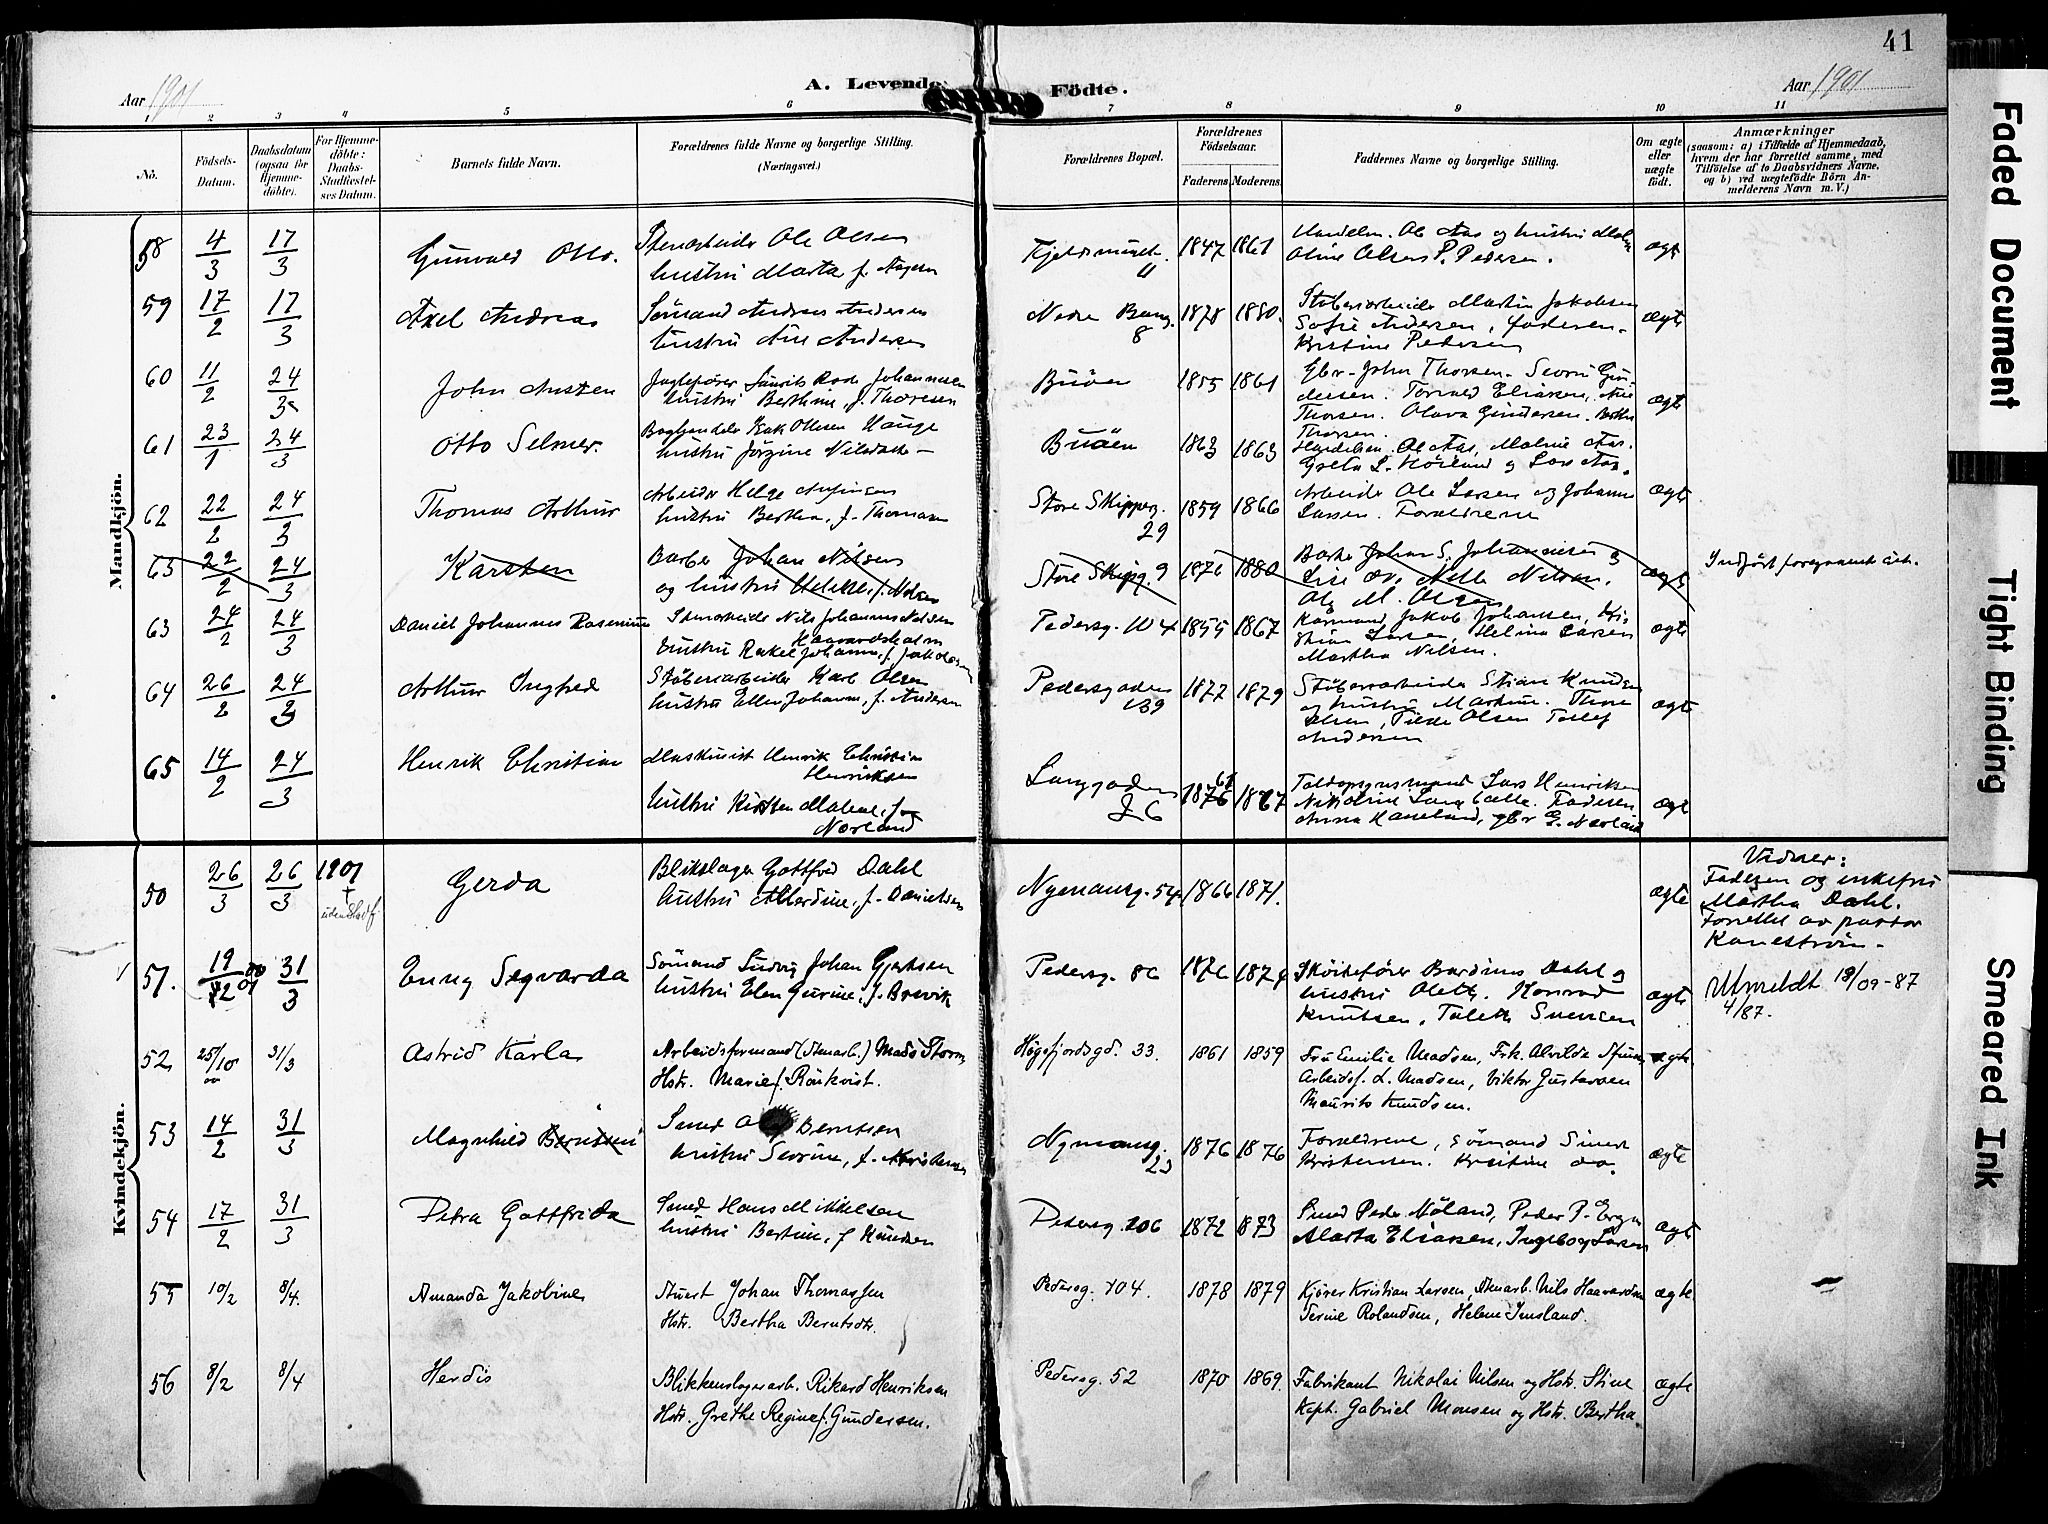 41
Aar 1901
A. Levende Födte.
Aar 1901
1 2 3 4 5 6 7 8 9 10 11
No.
Födsels-Datum.
Daabsdatum (ogsaa for Hjemmedöbte).
For Hjemmedöbte: Daabs-Stadfæstelses Datum.
Barnets fulde Navn.
Forældrenes fulde Navne og borgerlige Stilling. (Næringsvei.)
Forældrenes Bopæl.
Forældrenes Födselsaar. Faderens. Moderens.
Faddernes Navne og borgerlige Stilling.
Om ægte eller uægte födt.
Anmærkninger (saasom: a) i Tilfælde af Hjemmedaab, hvem der har forrettet samme, med Tilföielse af to Daabsvidners Navne, og b) ved uægtefödte Börn Anmelderens Navn m. V.)
Mandkjön.
58 4/3 17/3 Gunvald Otto. Stenarbeider Ole Olsen 1847 1861 Handelm. Ole Aas og hustru Malm ægte
hustru Marta f. 11 Oline Olsen P. Pedersen.
59 17/2 17/3 Axel Andreas Sömand Andreas Andersen Nedre 1878 1880. Støberiarbeider Martin Jakobsen ægte
hustru Ane Andersen 8 Sofie Andersen, faderen.
Kristine Pedersen
60 11/2 24/3 John Austen Jagtefører Laurits Johannesen Buöen 1855 1861 Gbr. John Thorsen.
hustru Berthine, f. Thoresen Torvald Eliasen, ægte
Thorsen. Olava Gundersen. Bertha
Thorsen.
61 23/1 24/3 Otto Selmer. Boghandler Isak Olsen Hauge Buöen 1863 1863 Ole Aas, Malene Aas.
hustru Jörgine Nilsdatter Greta L. og Lars Aas.
62 22/2 24/3 Thomas Arthur Arbeider Helge Store Skipperg. 1859 1866 Arbeider Ole Larsen og Johanne ægte
hustru Bertha, f. Thomasen 29 Larsen. Forældrene
63 22/2 24/3 Karsten Barber Johan Nilsen Store Skipg. 9 1876 1880 Johan S. Johannesen ægte Indført foregaaende
og hustru f. Nilsen Lise Nelle Nilsen.
M. Olsen
63 24/2 24/3 Daniel Johannes Rasmus Stenarbeider Nils Johannes Nilsen Pedersg. 104 1855 1867 Jakob Johansen, ægte
Haavardsholm Larsen, Helina Larsen
hustru Rakel Johanne, f. Jakobsen Martha Nilsen.
64 26/2 24/3 Arthur Ingfred Støberiarbeider Karl Olsen Pedersgaden 1877 1879 Støberiarbeider Stian Knudsen ægte
hustru Ellen Johanne, f. Andersen 139 og hustru Martine. Thore
Olsen, Tilde Olsen Tollef
Andersen
65 14/2 24/3 Henrik Christian Maskinist Henrik Christian Langgaden 1876 61 1867 Toldopsynsmand Lars Henriksen ægte
Henriksen 26
hustru Kirsten Malene, f. Faderen
Nærland Anna gbr E. Nærland
Kvindekjön.
50 26/3 26/3 1901 Gerda Blikslager Gottfred Dahl Nymansg. 54 1866 1871. ægte Vidner:
† hustru Alberdine, f. Danielsen Faderen og enkefru
Martha Dahl.
Forrettet av pastor
Kaneström.
51. 19/12 00 31/3 Enny Segvarda Sömand Ludvig Johan Gjertsen Pedersg. 86 1876 1874 Skøitefører Bardinus Dahl og ægte Utmeldt 18/09-87
hustru Elen Gurine, f. Brevik hustru Oleth. Konrad 4/87.
Knutsen, Taleth Svensen
52 25/10 00 31/3 Astrid Karla Arbeidsformand (Stenarb.) Mads Högsfjordsgd. 33. 1861 1859 Fru Emilie Madsen, Frk. Alvilde ægte.
Hstr. Marie f. Rönkvist. Arbeidsf. L. Madsen, Viktor Gustavsen
Maurits Knudsen.
53 14/2 31/3 Magnhild Berntsen Smed Berntsen Nymansg. 23 1876 1876 Forældrene, sömand Simon ægte
hustru Severine, f. Kristensen Kristensen. Kristine do.
54 17/2 31/3 Petra Gottfrida Smed Hans Mikkelsen Pedersg. 106 1872 1873 Smed Peder Nöland, Peder P. ægte
hustru Bertine, f. Knudsen Marta Eliasen, Ingeborg Larsen
55 10/2 8/4. Amanda Jakobine Stuert Johan Thomassen Pedersg. 104. 1878 1879 Kjörer Kristian Larsen, Stenarb. Nils Haavardsen ægte
Hstr. Bertha Berntsdtr. Serine Rolandsen, Helene Imsland.
56 8/2 8/4 Herdis Blikkenslagerarb. Rikard Henriksen Pedersg. 52 1870 1869. Fabrikant Nikolai Nilsen og Hstr. Stine ægte
Hstr. Grethe Regine f. Gundersen. Kapt. Gabriel Monsen og Hstr. Bertha.
Faded Document
Tight Binding
Smeared Ink